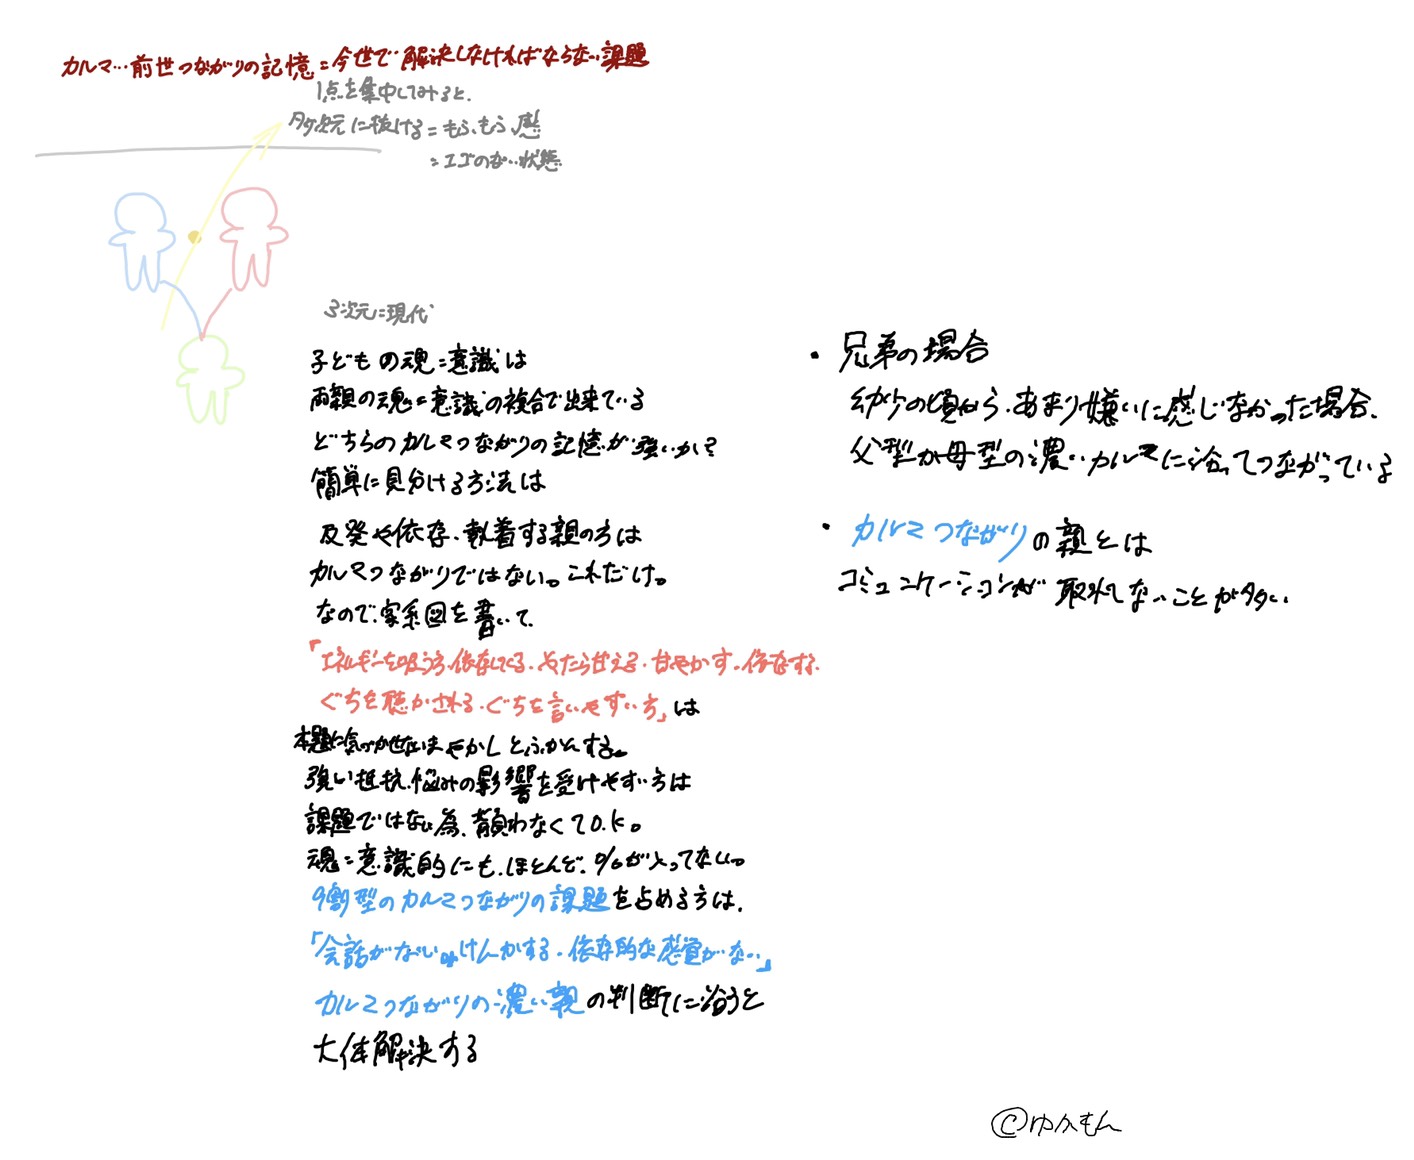 カルマ…前世つながりの記憶=今世で解決しなければならない課題
1点を集中してみると、
多次元に抜ける=もふもふ感
=エゴのない状態
3次元=現代
子どもの魂=意識は
両親の魂=意識の複合で出来ている
どちらのカルマつながりの記憶が強いかを
簡単に見分ける方法は
反発や依存、執着する親の方は
カルマつながりではない。これだけ。
なので、家系図を書いて、
「エネルギーを吸う方・依存してくる・やたら甘える・甘やかす・依存する
ぐちを聴かされる・ぐちを言いやすい方」は
本題に気づかせないまやかしとふかんする。
強い抵抗、悩みの影響を受けやすい方は
課題ではない為、背負わなくてO.K。
魂=意識的にも、ほとんど、%が入ってない。
9割型のカルマつながりの課題を占める方は、
「会話がない or けんかする・依存的な感覚がない」
カルマつながりの濃い親の判断に沿うと
大体解決する
・兄弟の場合
幼少の頃から、あまり嫌いに感じなかった場合、
父型か母型の濃いカルマに沿ってつながっている
・カルマつながりの親とは
コミュニケーションが取れてないことが多い
©ゆふもん